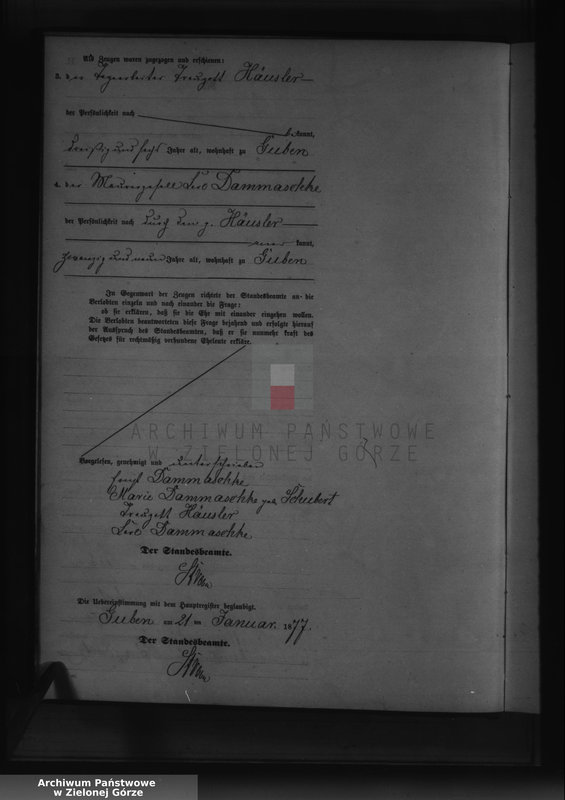 Als Zeugen waren zugezogen und erschienen:
3. der Tagearbeiter Traugott Häusler
der Persönlichkeit nach
bekannt,
dreißig und sechs Jahre alt, wohnhaft zu Guben
4. der Maurergeselle Dammaschke
der Persönlichkeit nach durch den p. Häusler
kannt,
zwanzig und neun Jahre alt, wohnhaft zu Guben
In Gegenwart der Zeugen richtete der Standesbeamte an die
Verlobten einzeln und nach einander die Frage:
ob sie erklären, daß sie die Ehe mit einander eingehen wollen.
Die Verlobten beantworteten diese Frage bejahend und erfolgte hierauf
der Ausspruch des Standesbeamten, daß er sie nunmehr kraft des
Gesetzes für rechtmäßig verbundene Eheleute erkläre.
ARCHIWUM PAŃSTWOWE
W ZIELONEJ GÓRZE
Vorgelesen, genehmigt und unterschrieben
Dammaschke
Marie Dammaschke geb. Schubert
Traugott Häusler
Dammaschke
Der Standesbeamte.
Die Uebereinstimmung mit dem Hauptregister beglaubigt.
Guben am 21. ten Januar 1877.
Der Standesbeamte.
Archiwum Państwowe
w Zielonej Górze